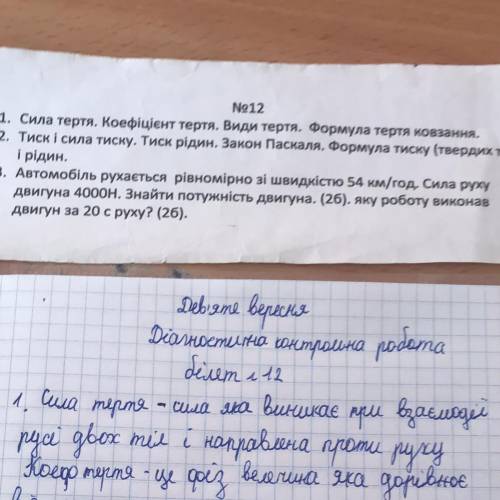 №12
1. Сила тертя. Коефіцієнт тертя. Види тертя. Формула тертя ковзання.
2. Тиск і сила тиску. Тиск рідин. Закон Паскаля. Формула тиску (твердих т
і рідин.
3. Автомобіль рухається рівномірно зі швидкістю 54 км/год. Сила руху
двигуна 4000Н. Знайти потужність двигуна. (2б). яку роботу виконав
двигун за 20 с руху? (2б).
Дев'яте вересня
Діагностична контрольна робота
білет 12
1. Сила тертя - сила яка виникає при взаємодії
русі двох тіл і направлена проти руху
Коеф тертя - це фіз величина яка дорівнює